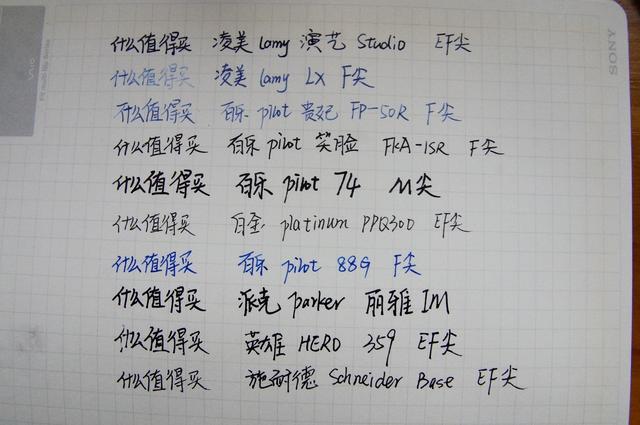 什么值得买 凌美 lamy 演艺 Studio EF尖
什么值得买 凌美 lamy LX F尖
什么值得买 百乐 pilot 贵妃 FP-50R F尖
什么值得买 百乐 pilot 笑脸 FKA-1SR F尖
什么值得买 百乐 pilot 74 M尖
什么值得买 白金 platinum PPQ300 EF尖
什么值得买 百乐 pilot 88G F尖
什么值得买 派克 parker 丽雅 IM
什么值得买 英雄 HERO 359 EF尖
什么值得买 施耐德 Schneider Base EF尖
SONY